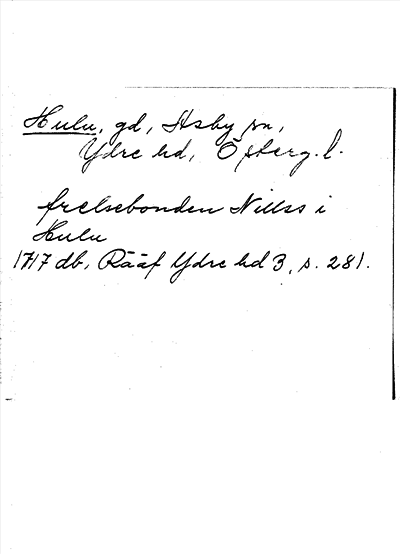 Hulu, gd, Asby sn,
Ydre hd, Österg. l.
frelsebonden Nillss i
Hulu
1717 db, Rääf Ydre hd 3, s. 281.